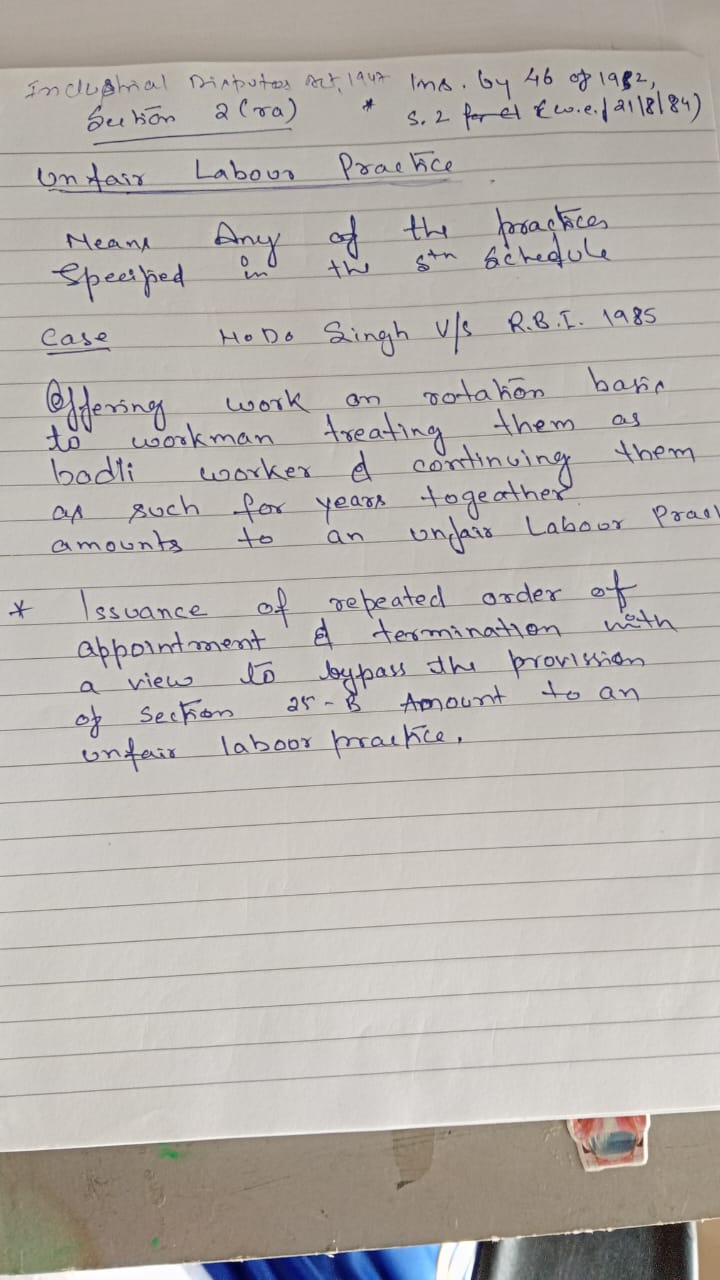 Industrial Disputes Act, 1947 Ins. by 46 of 1982,
Section 2(ra) * S. 2 (w.e.f 21/8/84)
Unfair Labour Practice
Means Any of the practices
Specified in the 5th Schedule
Case H.D. Singh V/s R.B.I. 1985
Offering work on rotation basis
to workman treating them as
badli worker & continuing them
as such for years togeather
amounts to an unfair Labour Prac
* Issuance of repeated order of
appointment & termination with
a view to bypass the provission
of Section 25-B Amount to an
unfair labour practice.